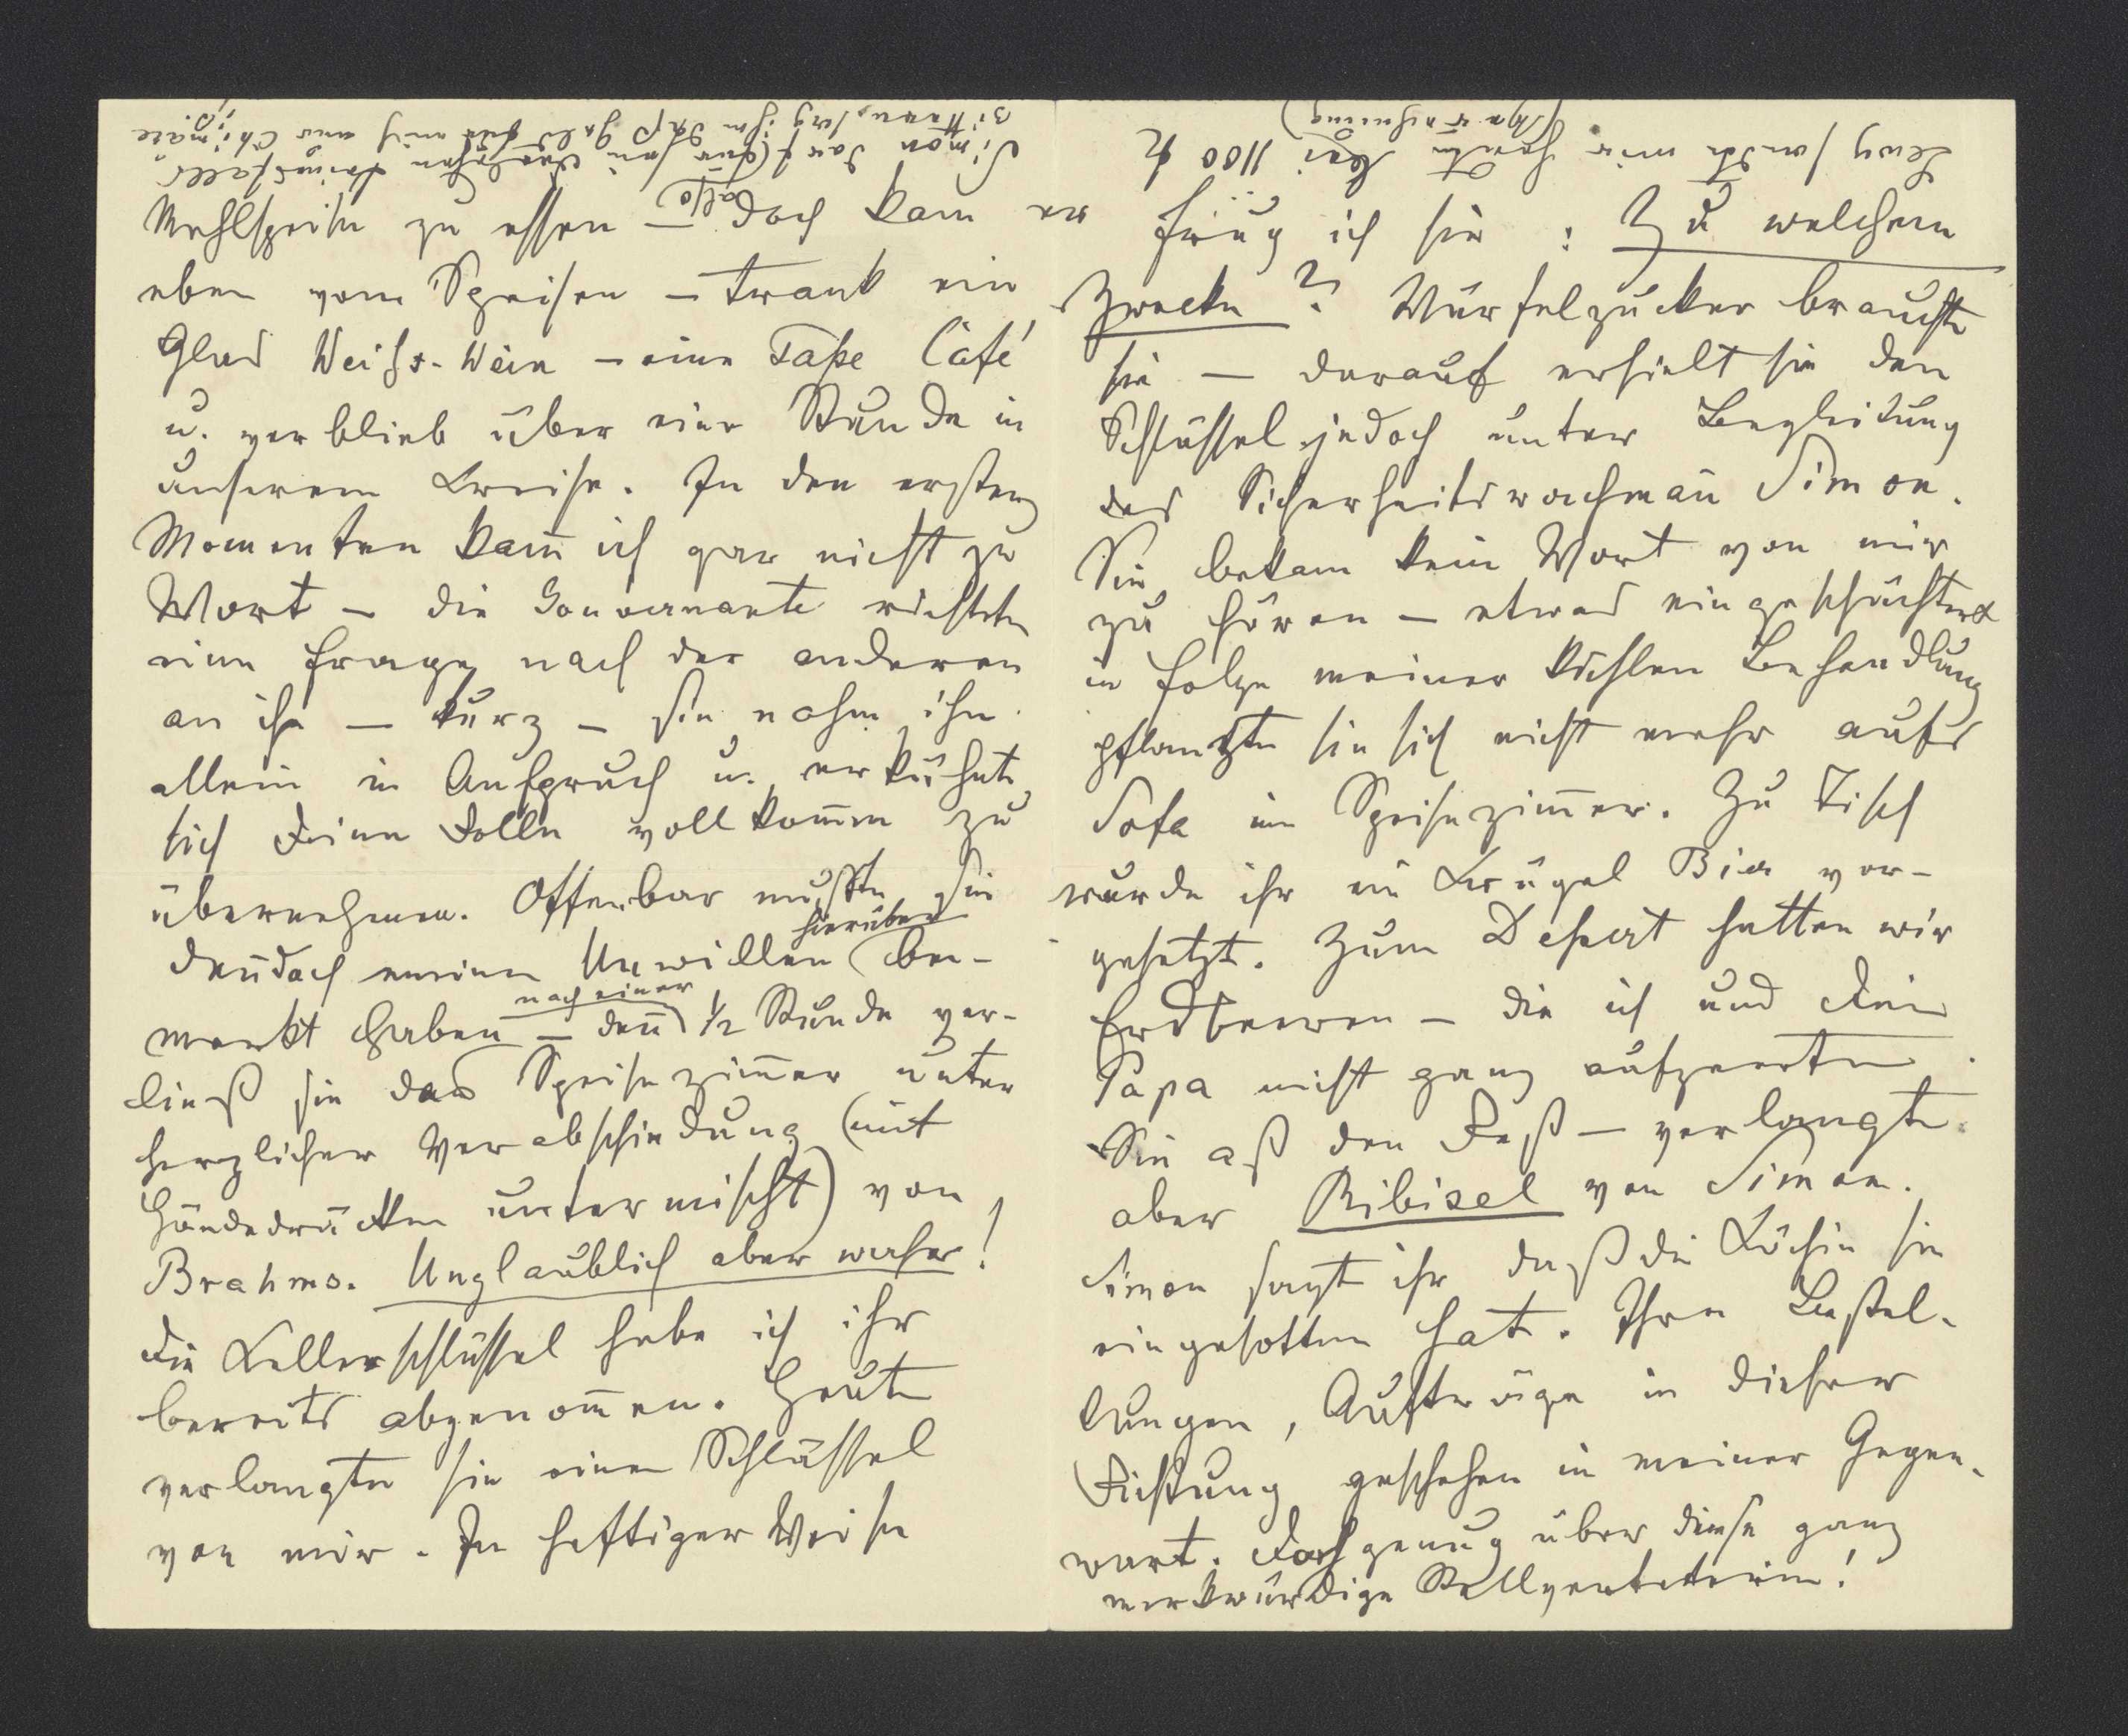 Mehlspeise zu essen — also doch kam er
eben vom Speisen — trank ein
Glas Weiss-Wein — eine Tasse Café
u. verblieb über eine Stunde in
unserem Kreise. In den ersten
Momenten kam̄ ich gar nicht zu
Wort — die Gouvernante richtete
eine Frage nach der anderen
an ihn — kurz — sie nahm ihn
allein in Anspruch u. erkühnte
sich Deine Rolle vollkom̄en zu
übernehmen. Offenbar mußte sie
den̄doch meinen Unwillen hierüber be-
merkt haben — den̄ nach einer ½ Stunde ver-
ließ sie das Speisezim̄er unter
herzlicher Verabschiedung (mit
Händedrücken untermischt) von
Brahms. Unglaublich aber wahr!
Die Kellerschlüssel habe ich ihr
bereits abgenom̄en. Heute
verlangte sie einen Schlüssel
von mir. In heftiger Weise
frug ich sie: Zu welchem
Zwecke? Würfelzucker brauchte
sie — darauf erhielt sie den
Schlüssel jedoch unter Begleitung
des Sicherheitswachman̄ Simon.
Sie bekam kein Wort von mir
zu hören — etwas eingeschüchtert
in Folge meiner kühlen Behandlung
pflanzte sie sich nicht mehr aufs
Sofa im Speisezim̄er. Zu Tisch
wurde ihr ein Krügel Bier vor-
gesetzt. Zum Dessert hatten wir
Erdbeeren — die ich und Dein
Papa nicht ganz aufzehrten.
Sie aß den Rest — verlangte
aber Ribisel von Simon.
Simon sagt ihr daß die Köchin sie
eingesotten hat. Ihre Bestel-
lungen, Aufträge in dieser
Richtung geschehen in meiner Gegen-
wart. Doch genug über diese ganz
merkwürdige Stellvertreterin!
Lewy sandte mir heute 1100 fl
Simon darf